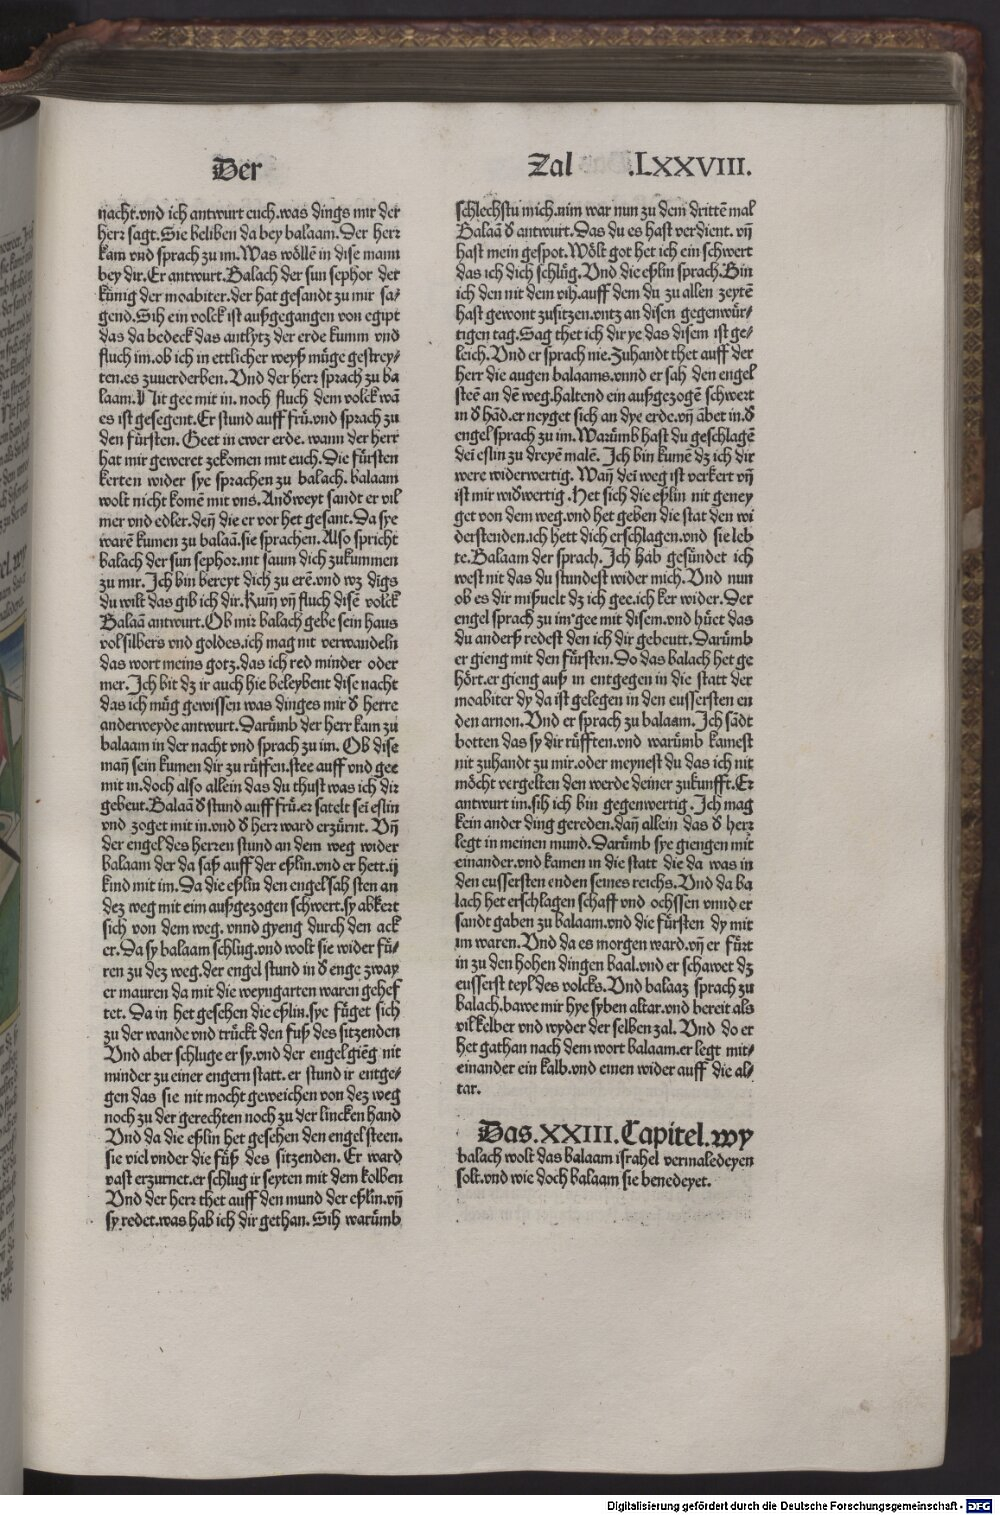 Der
Zal .LXXVIII.
nacht.vnd ich antwurt euch.was dings mir der
herr sagt.Sie beliben da bey balaam.Der herr
kam vnd sprach zu im.Was wöllē in dise mann
bey dir.Er antwurt.Balach der sun sephor der
künig der moabiter.der hat gesandt zu mir sa⸗
gend.Sih ein volck ist außgegangen von egipt
das da bedeck das antlytz der erde kumm vnd
fluch im.ob ich in ettlicher weyß müge gestrey⸗
ten.es zuuerderben.Vnd der herr sprach zu ba
laam.Nit gee mit in.noch fluch dem volck wā
es ist gesegent.Er stund auff frü.vnd sprach zu
den fürsten.Geet in ewer erde.wann der herr
hat mir geweret zekomen mit euch.Die fürsten
kerten wider sye sprachen zu balach.balaam
wolt nicht komē mit vns.Anđweyt sandt er vil
mer vnd edler.deñ die er vor het gesant.Da sye
warē kumen zu balaā.sie sprachen.Also spricht
balach der sun sephor.nit saum dich zukummen
zu mir.Ich bin bereyt dich zu erē.vnd wz digs
du wilt das gib ich dir.Kum̄ vn̄ fluch disē volck
Balaā antwurt.Ob mir balach gebe sein haus
vol silbers vnd goldes.ich mag nit verwandeln
das wort meins gotz.das ich red minder oder
mer.Ich bit dz ir auch hie beleybent dise nacht
das ich müg gewissen was dinges mir đ herre
anderweyde antwurt.Darümb der herr kam zu
balaam in der nacht vnd sprach zu im.Ob dise
man̄ sein kumen dir zu rüffen.stee auff vnd gee
mit in.doch also allein das du thust was ich dir
gebeut.Balaā đ stund auff frü.er satelt sei eslin
vnd zoget mit in.vnd đ herr ward erzürnt.Vn̄
der engel des herren stund an dem weg wider
balaam der da saß auff der eßlin.vnd er hett.ij
kind mit im.Da die eßlin den engel sah sten an
dez weg mit eim außgezogen schwert.sy abkert
sich von dem weg.vnnd gyeng durch den ack
er.Da sy balaam schlug.vnd wolt sie wider fü⸗
ren zu dez weg.der engel stund in đ enge zway
er mauren da mit die weyngarten waren gehef
tet.Da in het gesehen die eßlin.sye füget sich
zu der wande vnd trückt den fuß des sitzenden
Vnd aber schluge er sy.vnd der engel giēg nit
minder zu einer engern statt.er stund ir entge⸗
gen das sie nit mocht geweichen von dez weg
noch zu der gerechten noch zu der lincken hand
Vnd da die eßlin het gesehen den engel steen.
sie viel vnder die füß des sitzenden.Er ward
vast erzurnet.er schlug ir seyten mit dem kolben
Vnd der herr thet auff den mund der eßlin.vn̄
sy redet.was hab ich dir gethan.Sih warümb
schlechstu mich.nim war nun zu dem drittē mal
Balaā đ antwurt.Das du es hast verdient.vn̄
hast mein gespot.Wölt got het ich ein schwert
das ich dich schlüg.Vnd die eßlin sprach.Bin
ich den nit dem vih.auff dem du zu allen zeytē
hast gewont zusitzen.vntz an disen gegenwür⸗
tigen tag.Sag thet ich dir ye das disem ist ge⸗
leich.Vnd er sprach nie.Zuhandt thet auff der
herr die augen balaams.vnnd er sah den engel
steē an dē weg.haltend ein außgezogē schwert
in đ hād.er neyget sich an dye erde.vn̄ ābet in.đ
engel sprach zu im.Warümb hast du geschlagē
dei eslin zu dreyē malē.Ich bin kumē dz ich dir
were widerwertig.Wan̄ dei weg ist verkert vn̄
ist mir wiđwertig.Het sich die eßlin nit geney
get von dem weg.vnd het geben die stat den wi
derstenden.ich hett dich erschlagen.vnd sie leb
te.Balaam der sprach.Ich hab gesündet ich
west nit das du stundest wider mich.Vnd nun
ob es dir mißuelt dz ich gee.ich ker wider.Der
engel sprach zu im.gee mit disem.vnd hüet das
du anderß redest den ich dir gebeutt.Darümb
er gieng mit den fürsten.Do das balach het ge
hört.er gieng auß in entgegen in die statt der
moabiter dy da ist gelegen in den eussersten en
den arnon.Vnd er sprach zu balaam.Ich sādt
botten das sy dir rüfften.vnd warümb kamest
nit zuhandt zu mir.oder meynest du das ich nit
möcht vergelten den werde deiner zukunfft.Er
antwurt im.sih ich bin gegenwertig.Ich mag
kein ander ding gereden.dan̄ allein das đ herr
legt in meinen mund.Darümb sye giengen mit
einander.vnd kamen in die statt die da was in
den eussersten enden seines reichs.Vnd da ba
lach het erschlagen schaff vnd ochssen vnnd er
sandt gaben zu balaam.vnd die fürsten dy mit
im waren.Vnd da es morgen ward.vn̄ er fürt
in zu den hohen dingen baal.vnd er schawet dz
eusserst teyl des volcks.Vnd balaaz sprach zu
balach.bawe mir hye syben altar.vnd bereit als
vil kelber vnd wyder der selben zal.Vnd do er
het gathan nach dem wort balaam.er legt mit⸗
einander ein kalb.vnd einen wider auff die al⸗
tar.
Das.XXIII.Capitel.wy
balach wolt das balaam israhel vermaledeyen
solt.vnd wie doch balaam sie benedeyet.
Digitalisierung gefördert durch die Deutsche Forschungsgemeinschaft - DFG